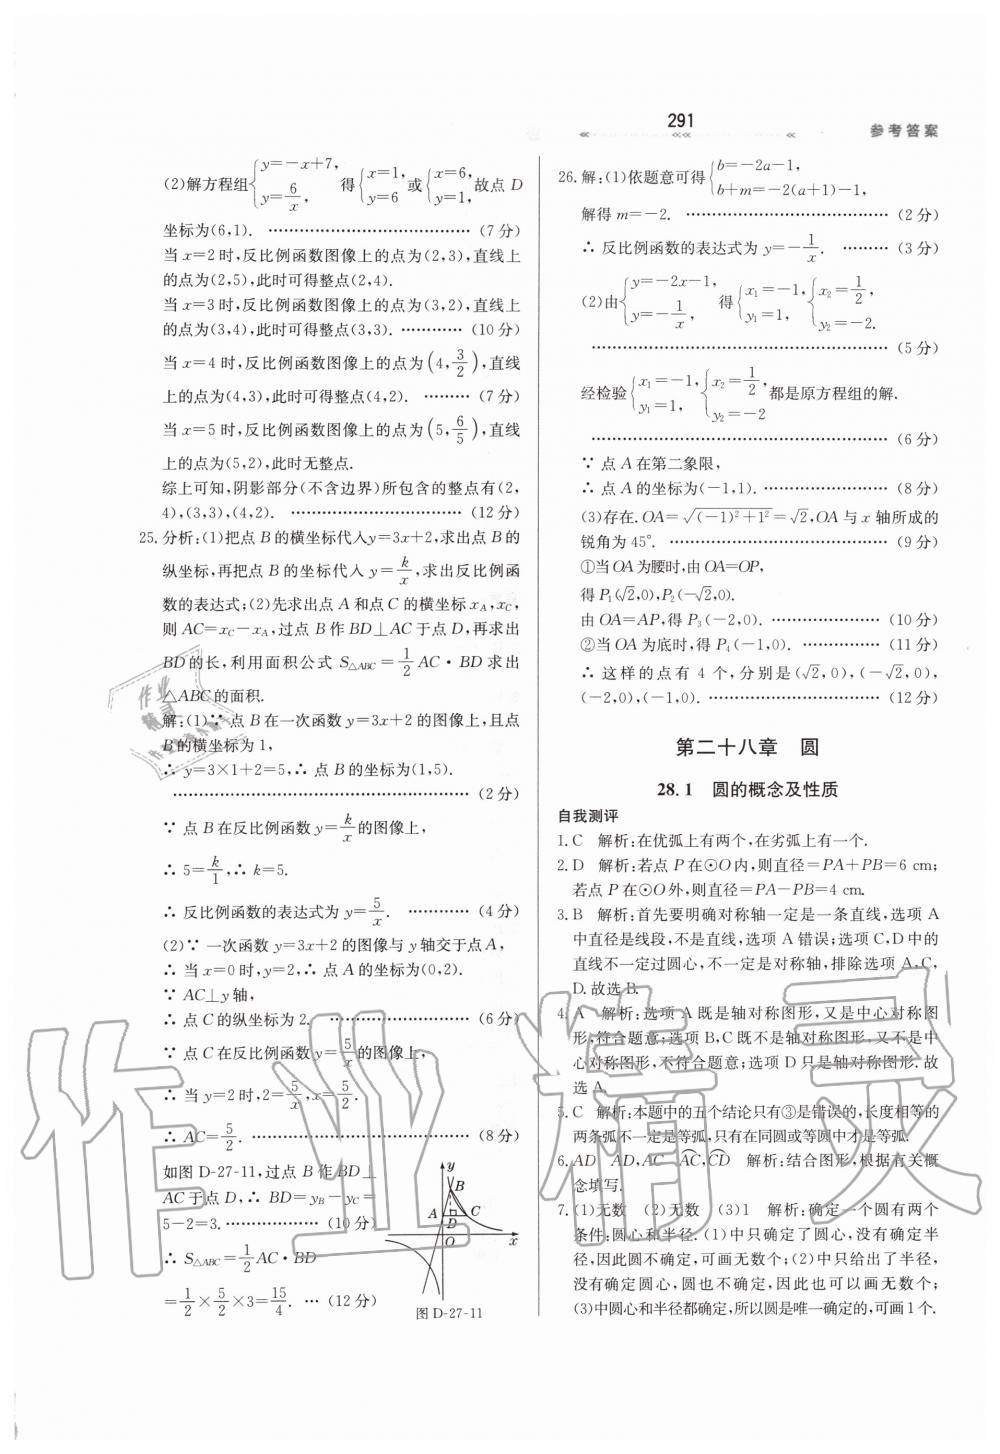 291
参考答案
(2)解方程组{y=-x+7, y=6/x, 得{x=1, y=6 或{x=6, y=1, 故点 D
坐标为(6,1). ……………………………… (7 分)
当 x=2 时,反比例函数图像上的点为(2,3),直线上
的点为(2,5),此时可得整点(2,4).
当 x=3 时,反比例函数图像上的点为(3,2),直线上
的点为(3,4),此时可得整点(3,3). ………… (10 分)
当 x=4 时,反比例函数图像上的点为(4,3/2),直线
上的点为(4,3),此时可得整点(4,2). ……… (7 分)
当 x=5 时,反比例函数图像上的点为(5,6/5),直线
上的点为(5,2),此时无整点.
综上可知,阴影部分(不含边界)所包含的整点有(2,
4),(3,3),(4,2). …………………………… (12 分)
25. 分析:(1)把点 B 的横坐标代入y=3x+2,求出点 B 的
纵坐标,再把点 B 的坐标代入 y=k/x,求出反比例函
数的表达式;(2)先求出点 A 和点 C 的横坐标 xA,xC,
则 AC=xC-xA,过点 B 作 BD⊥AC 于点 D,再求出
BD 的长,利用面积公式 S△ABC=1/2 AC·BD 求出
△ABC 的面积.
解:(1)∵ 点 B 在一次函数 y=3x+2 的图像上,且点
B 的横坐标为 1,
∴ y=3×1+2=5,∴ 点 B 的坐标为(1,5).
……………………………………………… (2 分)
∵ 点 B 在反比例函数 y=k/x 的图像上,
∴ 5=k/1,∴ k=5.
∴ 反比例函数的表达式为 y=5/x. ………… (4 分)
(2)∵ 一次函数 y=3x+2 的图像与 y 轴交于点 A,
∴ 当 x=0 时,y=2,∴ 点 A 的坐标为(0,2).
∵ AC⊥y 轴,
∴ 点 C 的纵坐标为 2. …………………… (6 分)
∵ 点 C 在反比例函数 y=5/x 的图像上,
∴ 当 y=2 时,2=5/x,x=5/2.
∴ AC=5/2. ………………………………… (8 分)
如图 D-27-11,过点 B 作 BD⊥
AC 于点 D,∴ BD=yB-yC=
5-2=3. ……………… (10 分)
∴ S△ABC=1/2 AC·BD
=1/2×5/2×3=15/4. … (12 分)
y
B
A
D
C
O
x
图 D-27-11
26. 解:(1)依题意可得{b=-2a-1, b+m=-2(a+1)-1,
解得 m=-2. ……………………………… (2 分)
∴ 反比例函数的表达式为 y=-1/x. ……… (3 分)
(2)由{y=-2x-1, y=-1/x, 得{x1=-1, y1=1, {x2=1/2, y2=-2.
……………………………………………… (5 分)
经检验{x1=-1, y1=1, {x2=1/2, y2=-2 都是原方程组的解.
……………………………………………… (6 分)
∵ 点 A 在第二象限,
∴ 点 A 的坐标为(-1,1). ………………… (8 分)
(3)存在. OA=√((-1)²+1²)=√2,OA 与 x 轴所成的
锐角为 45°. ………………………………… (9 分)
①当 OA 为腰时,由 OA=OP,
得 P1(√2,0),P2(-√2,0).
由 OA=AP,得 P3(-2,0). ……………… (10 分)
②当 OA 为底时,得 P4(-1,0). ………… (11 分)
∴ 这样的点有 4 个,分别是(√2,0),(-√2,0),
(-2,0),(-1,0). ………………………… (12 分)
第二十八章 圆
28.1 圆的概念及性质
自我测评
1. C 解析:在优弧上有两个,在劣弧上有一个.
2. D 解析:若点 P 在⊙O 内,则直径=PA+PB=6 cm;
若点 P 在⊙O 外,则直径=PA-PB=4 cm.
3. B 解析:首先要明确对称轴一定是一条直线,选项 A
中直径是线段,不是直线,选项 A 错误;选项 C,D 中的
直线不一定过圆心,不一定是对称轴,排除选项 A,C,
D. 故选 B.
4. A 解析:选项 A 既是轴对称图形,又是中心对称图
形,符合题意;选项 B,C 既不是轴对称图形,又不是中
心对称图形,不符合题意;选项 D 只是轴对称图形. 故
选 A.
5. C 解析:本题中的五个结论只有③是错误的,长度相等的
两条弧不一定是等弧,只有在同圆或等圆中才是等弧.
6. AD AD,AC ⌒AC,⌒CD 解析:结合图形,根据有关概
念填写.
7. (1)无数 (2)无数 (3)1 解析:确定一个圆有两个
条件:圆心和半径. (1)中只确定了圆心,没有确定半
径,因此圆不确定,可画无数个;(2)中只给出了半径,
没有确定圆心,圆也不确定,因此也可以画无数个;
(3)中圆心和半径都确定,所以圆是唯一确定的,可画 1 个.
作业精灵
作业
精灵